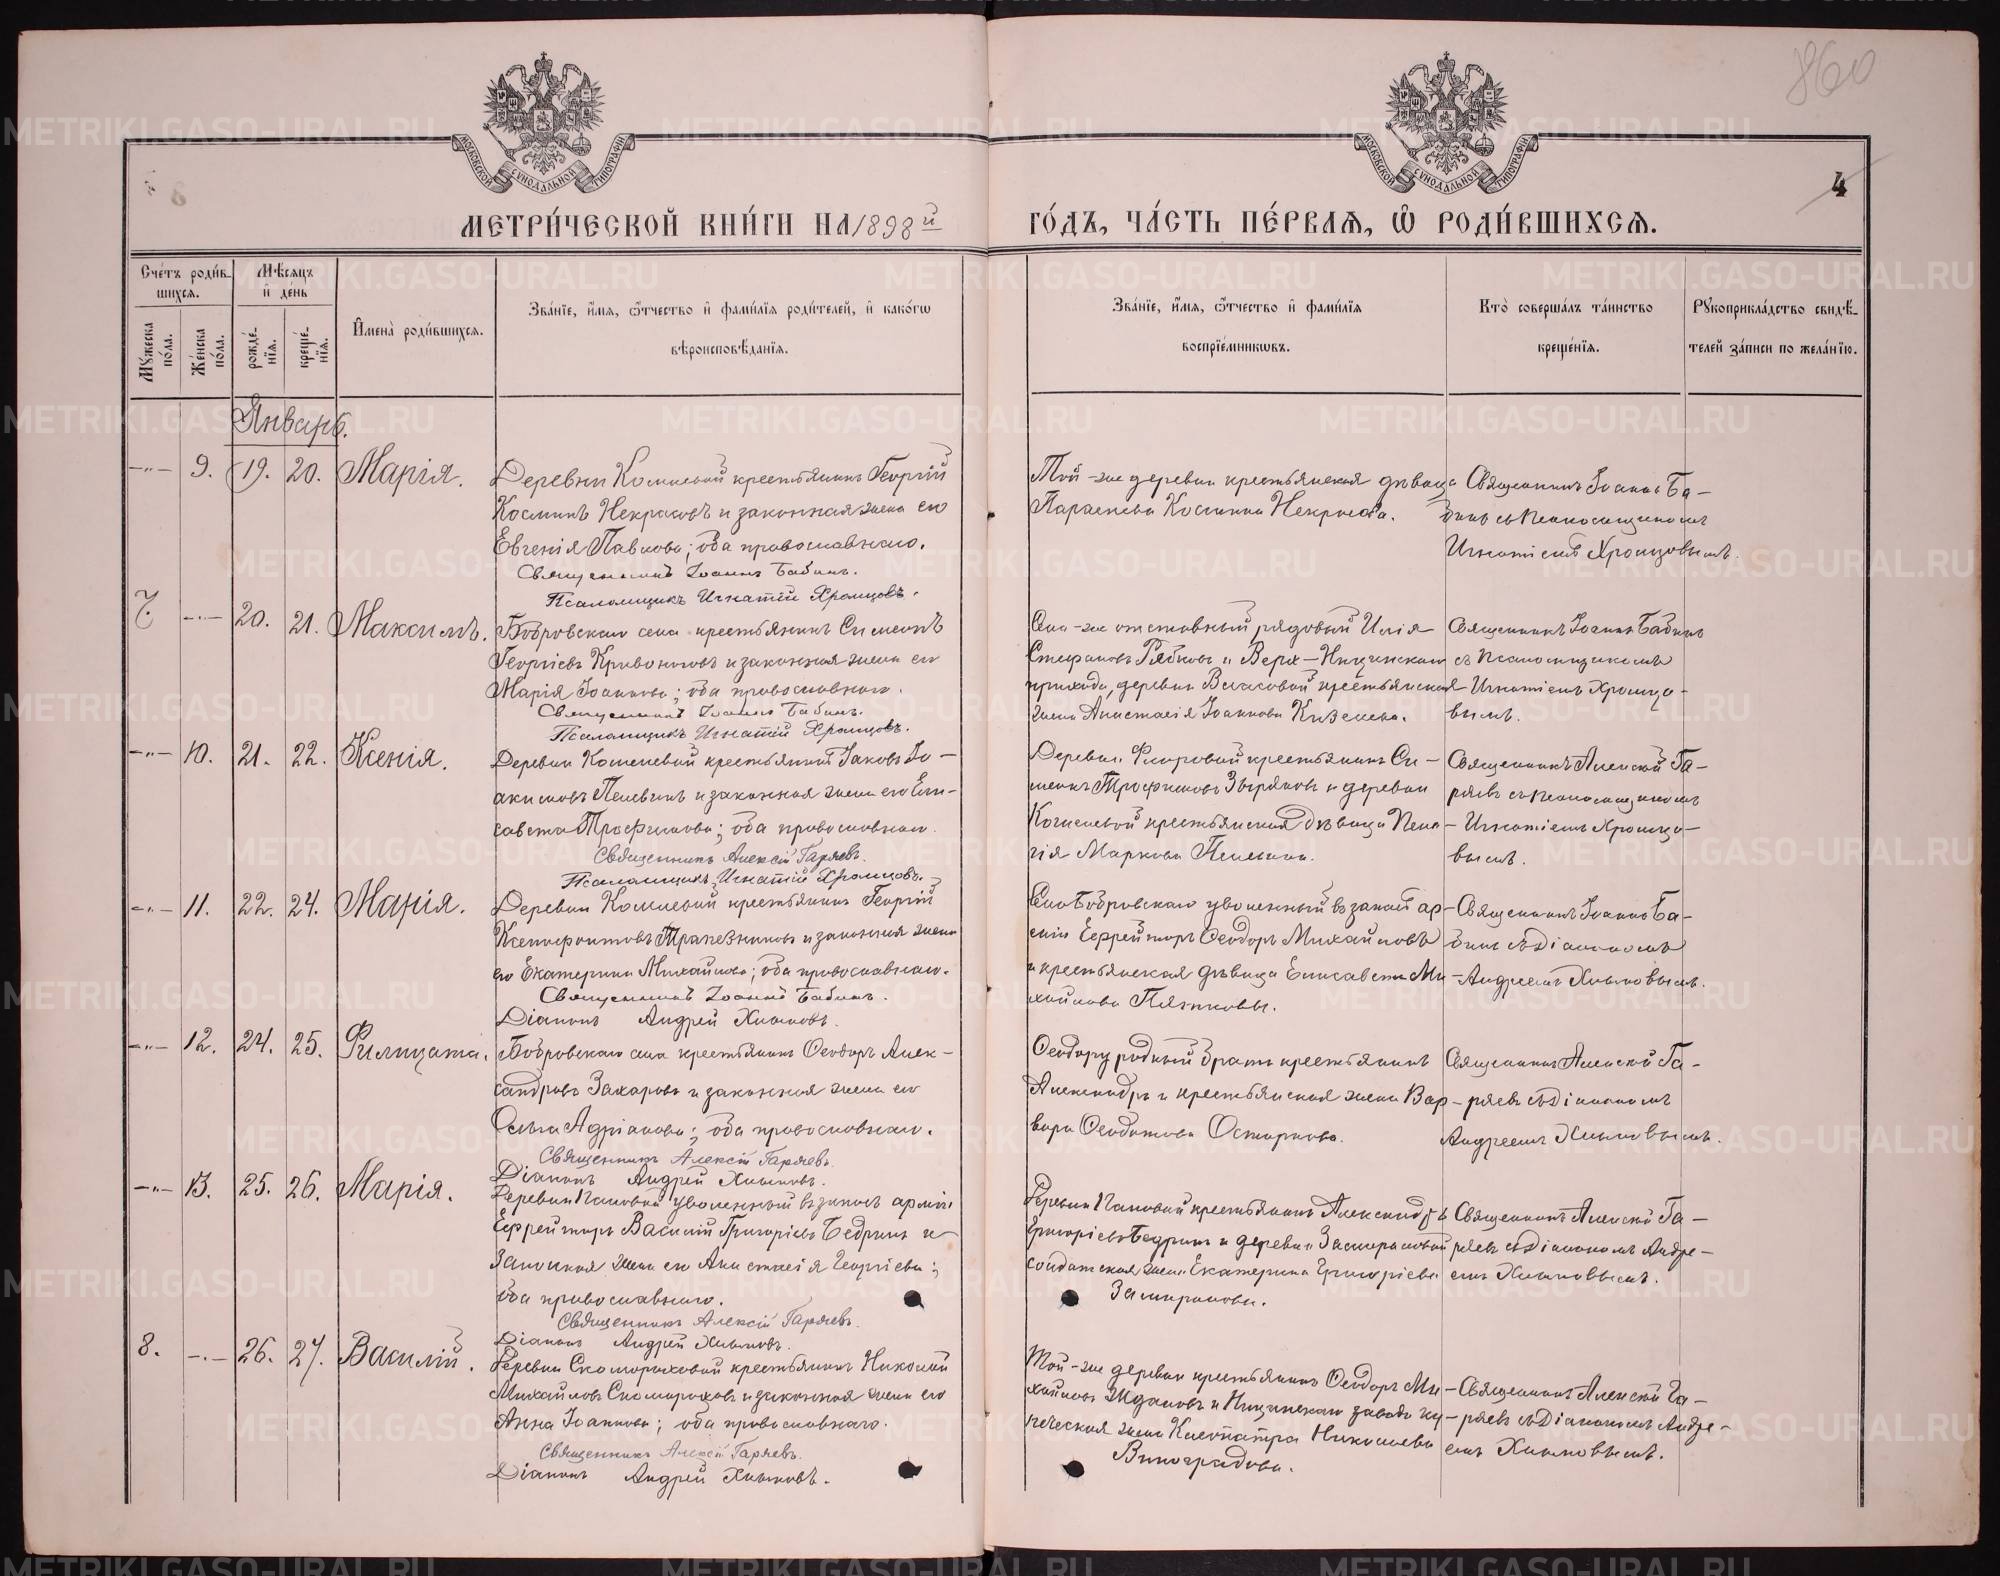 860
4
МОСКОВСКОЙ СѴНОДАЛЬНОЙ ТИПОГРАФІИ
МОСКОВСКОЙ СѴНОДАЛЬНОЙ ТИПОГРАФІИ
МЕТРИ́ЧЕСКОЙ КНИ́ГИ НА 1898й
ГО́ДЪ, ЧА́СТЬ ПЕ́РВАЯ, Ѽ РОДИ́ВШИХСЯ.
Сче́тъ роди́в-
шихся.
Мѣ́сяцъ
и҆ де́нь
Мꙋ́жеска по́ла.
Же́нска по́ла.
рожде́-нїя.
креще́-нїя.
И҆мена̀ роди́вшихся.
Зва́нїе, и҆́мя, ѻ҆́тчество и҆ фами́лїя роди́телей, и҆ како́гѡ
вѣроисповѣ́данїя.
Зва́нїе, и҆́мя, ѻ҆́тчество и҆ фами́лїя
воспрїе́мникѡвъ.
Кто̀ соверша́лъ та́инство
креще́нїя.
Рꙋкоприкла́дство свидѣ́-
телей за́писи по жела́нїю.
Январь.
-"- 9. 19. 20. Марія.
Деревни Комлевой крестьянинъ Георгій
Косминъ Некрасовъ и законная жена его
Евгенія Павлова; оба православнаго.
Священникъ Іоаннъ Бабинъ.
Псаломщикъ Игнатій Хромцовъ.
Той-же деревни крестьянская дѣвица
Параскева Космина Некрасова.
Священникъ Іоаннъ Ба-
бинъ съ псаломщикомъ
Игнатіемъ Хромцовымъ.
7. -"- 20. 21. Максимъ.
Бобровскаго села крестьянинъ Симеонъ
Георгіевъ Кривоноговъ и законная жена его
Марія Іоаннова; оба православнаго.
Священникъ Іоаннъ Бабинъ.
Псаломщикъ Игнатій Хромцовъ.
Села-же отставный рядовый Илія
Стефановъ Рябковъ и Верх-Ницинскаго
прихода, деревни Власовой крестьянская
жена Анастасія Іоаннова
Священникъ Іоаннъ Бабинъ
съ псаломщикомъ
Игнатіемъ Хромцо-
вымъ.
-"- 10. 21. 22. Ксенія.
Деревни крестьянинъ Іаковъ Іо-
акимовъ Пелевинъ и законная жена его Ели-
савета Трофимова; оба православнаго.
Священникъ Алексій Гаряевъ.
Псаломщикъ Игнатій Хромцовъ.
Деревни крестьянинъ Си-
меонъ Трофимовъ Зыряновъ и деревни
крестьянская дѣвица Пела-
гія Маркова Пелевина.
Священникъ Алексій Га-
ряевъ съ псаломщикомъ
Игнатіемъ Хромцо-
вымъ.
-"- 11. 22. 24. Марія.
Деревни Комлевой крестьянинъ Георгій
Ксенофонтовъ Трапезниковъ и законная жена
его Екатерина Михайлова; оба православнаго.
Священникъ Іоаннъ Бабинъ.
Діаконъ Андрей Хлыновъ.
Села Бобровскаго уволенный въ запасъ ар-
міи Ефрейторъ Ѳеодоръ Михайловъ
и крестьянская дѣвица Елисавета Ми-
хайлова Пятковы.
Священникъ Іоаннъ Ба-
бинъ съ Діакономъ
Андреемъ Хлыновымъ.
-"- 12. 24. 25. Филицата.
Бобровскаго села крестьянинъ Ѳеодоръ Алек-
сандровъ Захаровъ и законная жена его
Ольга Адріанова; оба православнаго.
Священникъ Алексій Гаряевъ.
Діаконъ Андрей Хлыновъ.
Ѳеодору родный братъ крестьянинъ
Александръ и крестьянская жена Вар-
вара Ѳеодотова
Священникъ Алексій Га-
ряевъ съ Діакономъ
Андреемъ Хлыновымъ.
-"- 13. 25. 26. Марія.
Деревни Пановой уволенный въ запасъ арміи
Ефрейторъ Василій Григорьевъ Бедринъ и
законная жена его Анастасія Георгіева;
оба православнаго.
Священникъ Алексій Гаряевъ.
Діаконъ Андрей Хлыновъ.
Деревни Пановой крестьянинъ Александръ
Григорьевъ Бедринъ и деревни
солдатская жена Екатерина Григорьева
Священникъ Алексій Га-
ряевъ съ Діакономъ Андре-
емъ Хлыновымъ.
8. -"- 26. 27. Василій.
Деревни Скомороховой крестьянинъ Николай
Михайловъ Скомороховъ и законная жена его
Анна Іоаннова; оба православнаго.
Священникъ Алексій Гаряевъ.
Діаконъ Андрей Хлыновъ.
Той-же деревни крестьянинъ Ѳеодоръ Ми-
хайловъ Ждановъ и Ницинскаго завода ку-
печеская жена Клеопатра Николаева
Виноградова.
Священникъ Алексій Га-
ряевъ съ Діакономъ Андре-
емъ Хлыновымъ.
METRIKI.GASO-URAL.RU